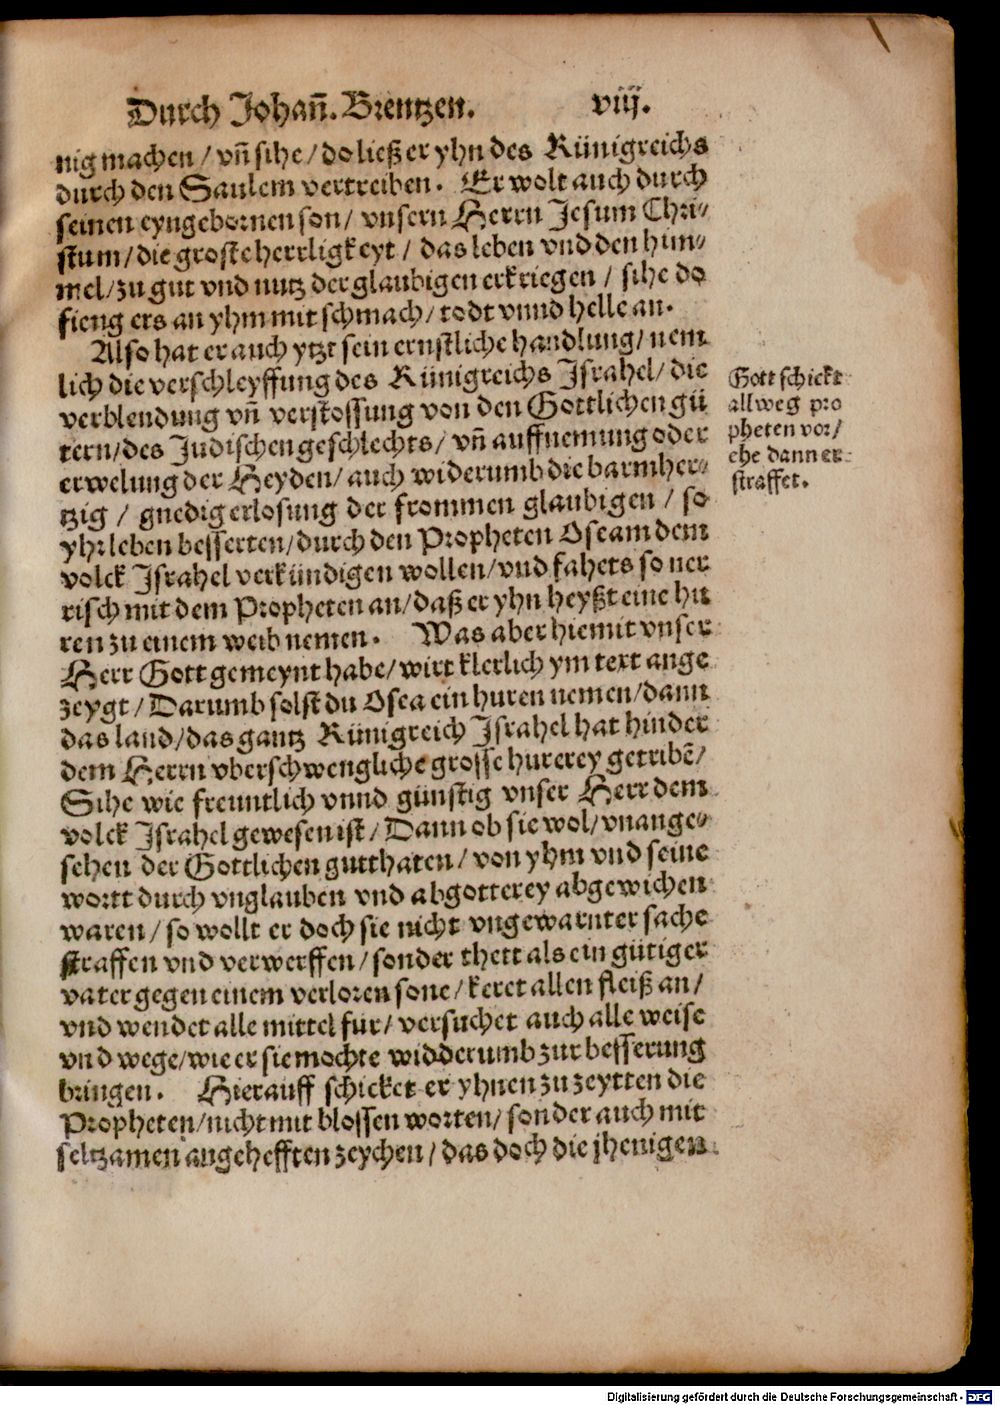 Durch Johañ. Brentzen. viij.
nig machen / vñ sihe / do ließ er yhn des Künigreichs
durch den Saulem vertreiben. Er wolt auch durch
seinen eyngebornen son / vnsern Herrn Jesum Chri⸗
stum / die groste herrligkeyt / das leben vnd den him⸗
mel / zu gut vnd nutz der glaubigen erkriegen / sihe do
fieng ers an yhm mit schmach / todt vnnd helle an.
Also hat er auch ytzt sein ernstliche handlung / nem
lich die verschleyffung des Künigreichs Israhel / die
verblendung vñ verstossung von den Gottlichen gü
tern / des Judischen geschlechts / vñ auffnemung oder
erwelung der Heyden / auch widerumb die barmher⸗
tzig / gnedig erlosung der frommen glaubigen / so
yhr leben besserten / durch den Propheten Oseam dem
volck Israhel verkündigen wollen / vnd fahets so ner
risch mit dem Propheten an / daß er yhn heyßt eine hu
ren zu einem weib nemen. Was aber hiemit vnser
Herr Gott gemeynt habe / wirt klerlich ym text ange
zeygt / Darumb solst du Osea ein huren nemen / dann
das land / das gantz Künigreich Israhel hat hinder
dem Herrn vberschwengliche grosse hurerey getribē /
Sihe wie freuntlich vnnd günstig vnser Herr dem
volck Israhel gewesen ist / Dann ob sie wol / vnange⸗
sehen der Gottlichen gutthaten / von yhm vnd seine
wortt durch vnglauben vnd abgotterey abgewichen
waren / so wollt er doch sie nicht vngewarnter sache
straffen vnd verwerffen / sonder thett als ein gütiger
vater gegen einem verloren sone / keret allen fleiß an /
vnd wendet alle mittel für / versuchet auch alle weise
vnd wege / wie er sie mochte widderumb zur besserung
bringen. Hierauff schicket er yhnen zu zeytten die
Propheten / nicht mit blossen worten / sonder auch mit
seltzamen angehefften zeychen / das doch die jhenigen
Gott schickt
allweg pro
pheten vor /
ehe dann er
straffet.
Digitalisierung gefördert durch die Deutsche Forschungsgemeinschaft - DFG